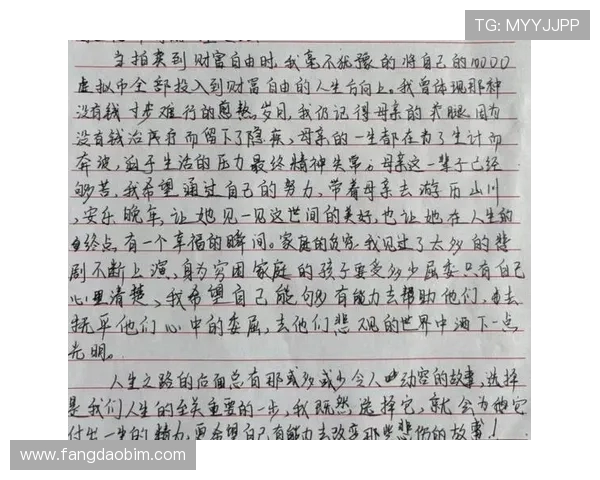 TG: MYYJJPP
当拍卖到财富自由时,我毫不犹豫的将自己的10000
虚拟币全部投入到财富自由的人生方向上。我曾体现那种
没有钱寸步难行的煎熬岁月,我仍记得母亲的 腿因为
没有钱治疗而留下了隐疾,母亲的一生都在为了生计而
奔波,迫于生活的压力最终精神失常。母亲这一辈子已经
够苦,我希望通过自己的努力,带着母亲去游历山川
,安乐晚年,让她见一见这世间的美好,也让她在人生的
终点有一个幸福的瞬间。家庭的贫穷,我见过了太多的悲
剧不断上演,身为穷困家庭的孩子要受多少屈委只有自己
心里清楚,我希望自己能够有能力去帮助他们,去
抚平他们心中的委屈,去他们悲观的世界中洒下一点
光明。
人生之路的后面总有那或多或少令人动容的故事,选择
是我们人生的至关重要的一步,我既然选择它,就会为他
付出一生的精力,更希望自己有能力去改变那些悲伤的故事!
www.fangdaobim.com